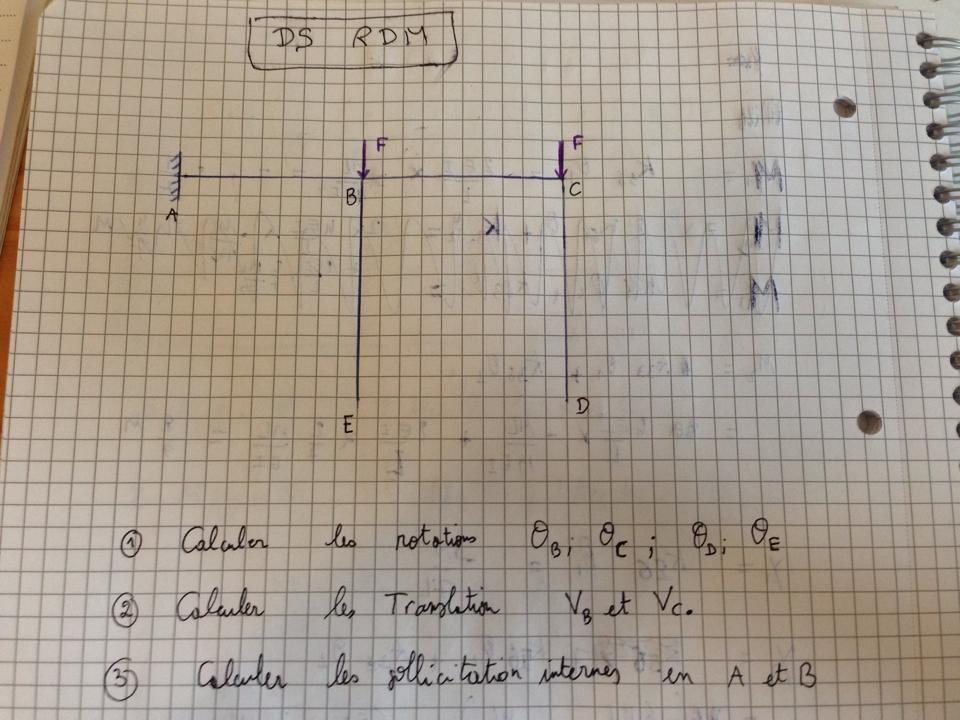 DS RDM
F F
A B C
E D
① Calculer les rotations θB; θC; θD; θE
② Calculer les Translation VB et VC.
③ Calculer les sollicitation internes en A et B